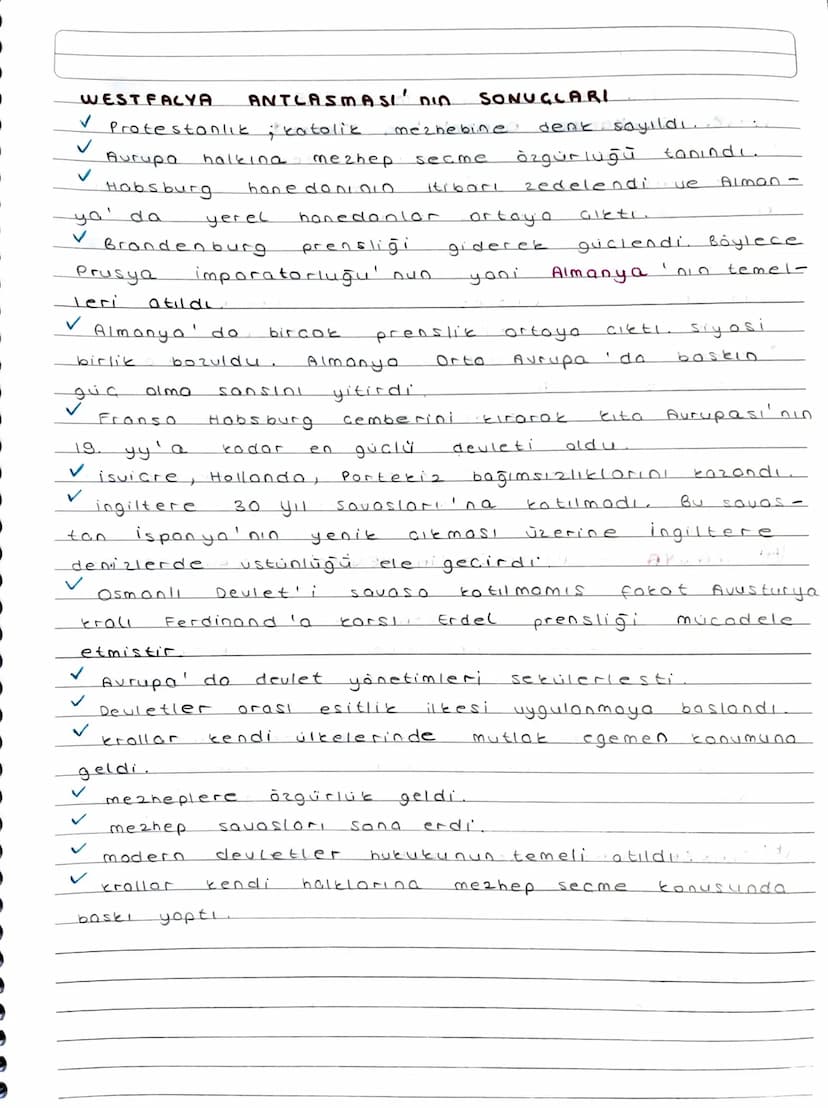 WESTFALYA ANTLASMASI'nın SONUCLARI
✓ Protestanlık ; katolik mezhebine denk sayıldı.
✓ Avrupa halkına mezhep secme özgürlüğü tanındı.
✓ Habsburg hanedanının itibarı zedelendi ve Alman-
ya'da yerel hanedanlar ortaya cıktı.
✓ Brandenburg prensliği giderek güclendi. Böylece
Prusya imparatorluğu'nun yani Almanya'nın temel-
leri atıldı.
✓ Almanya'da bircok prenslik ortaya cıktı. Siyasi
birlik bozuldu. Almanya Orta Avrupa'da baskın
güc olma sansını yitirdi.
✓ Fransa Habsburg cemberini kırarak kıta Avrupası'nın
19. yy'a kadar en güclü devleti oldu.
✓ isvicre, Hollanda, Portekiz bağımsızlıklarını kazandı.
✓ ingiltere 30 yıl savasları'na katılmadı. Bu savas-
tan ispanya'nın yenik cıkması üzerine ingiltere
denizlerde üstünlüğü ele gecirdi.
✓ Osmanlı Devlet'i savasa katılmamıs fakat Avusturya
kralı Ferdinand'a karsı Erdel prensliği mücadele
etmistir.
✓ Avrupa'da devlet yönetimleri sekülerlesti.
✓ Devletler arası esitlik ilkesi uygulanmaya baslandı.
✓ krallar kendi ülkelerinde mutlak egemen konumuna
geldi.
✓ mezheplere özgürlük geldi.
✓ mezhep savasları sona erdi.
✓ modern devletler hukukunun temeli atıldı.
✓ krallar kendi halklarına mezhep secme konusunda
baskı yaptı.